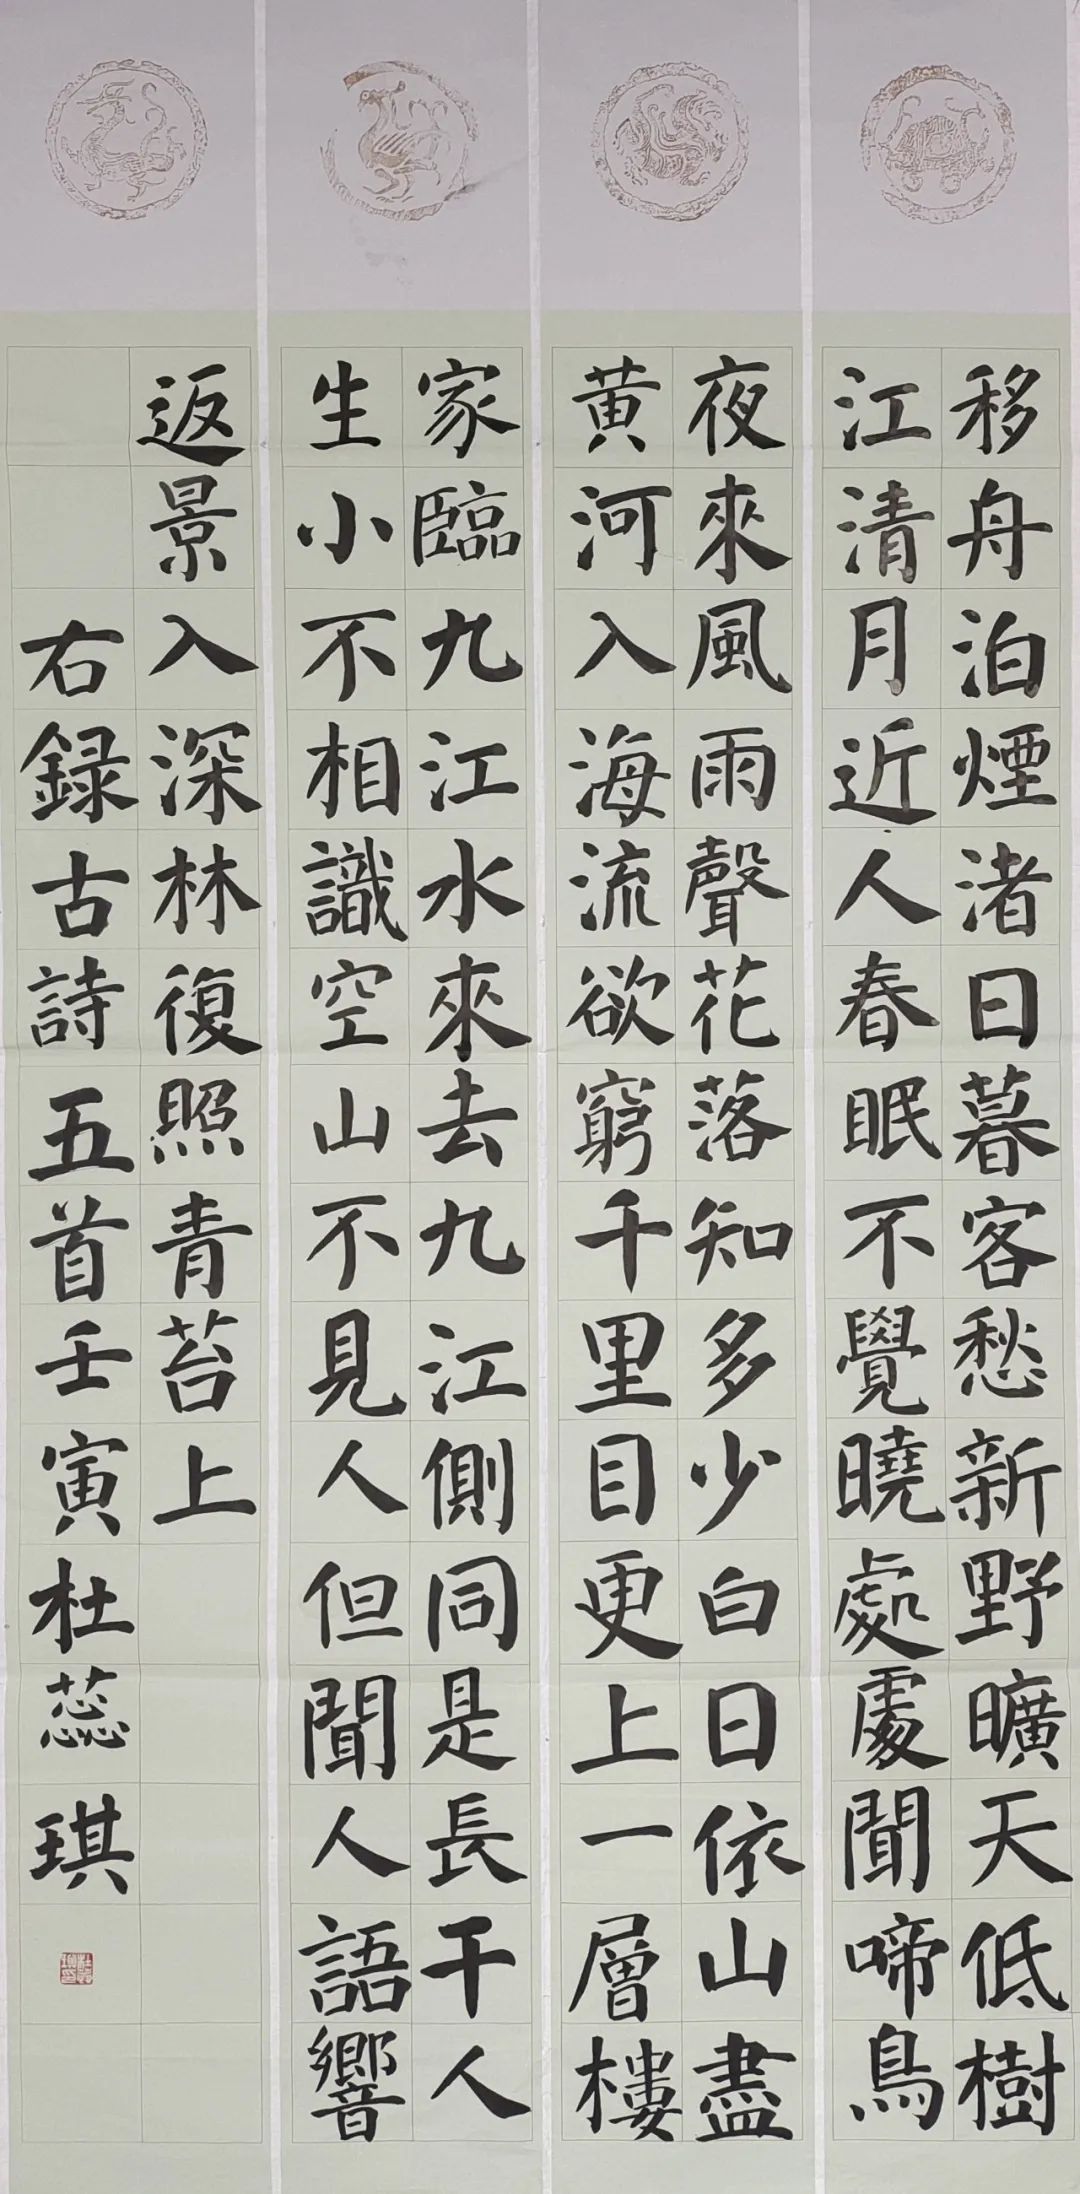 移舟泊煙渚日暮客愁新野曠天低樹
江清月近人春眠不覺曉處處聞啼鳥
夜來風雨聲花落知多少白日依山盡
黄河入海流欲窮千里目更上一層樓
家臨九江水來去九江側同是長干人
生小不相識空山不見人但聞人語響
返景入深林復照青苔上
右録古詩五首壬寅杜蕊琪